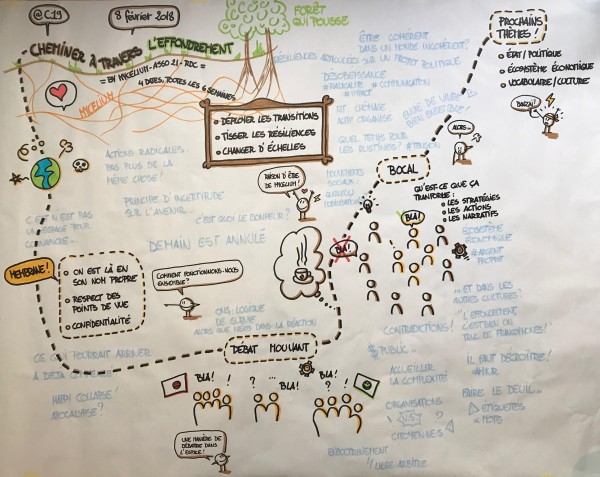 @C19
8 février 2018
FORÊT
QUI POUSSE
CHEMINER À TRAVERS L'EFFONDREMENT
= BY MYCELIUM-ASSO 21 - RDC =
4 DATES, TOUTES LES 6 SEMAINES
MYCELIUM
• DÉPLOYER LES TRANSITIONS
• TISSER LES RÉSILIENCES
• CHANGER D'ÉCHELLES
RAISON D'ÊTRE
DE MYCELIUM!
PROCHAINS
THÈMES!
• ÉTAT/POLITIQUE
• ÉCOSYSTÈME ÉCONOMIQUE
• VOCABULAIRE/CULTURE
ALORS...
ÊTRE COHÉRENT
DANS UN MONDE INCOHÉRENT?
RÉSILIENCES ARTICULÉES SUR UN PROJET POLITIQUE
DÉSOBÉISSANCE
#RADICALITÉ #COMMUNICATION
QUEL TEMPS POUR
LES RUSTINES? #TENSION
ACTIONS RADICALES:
PAS PLUS DE LA
MÊME CHOSE!
PRINCIPE D'INCERTITUDE
SUR L'AVENIR...
C'EST QUOI LE BONHEUR?
C'EST N'EST PAS
UN ESPACE POUR
CONVAINCRE...
DEMAIN EST ANNULÉ
BOCAL
QU'EST-CE QUE ÇA
TRANSFORME:
• LES STRATÉGIES
• LES ACTIONS
• LES NARRATIFS
BLA!
BLA!
ÉCOSYSTÈME
ÉCONOMIQUE
#ARGENT
PROPRE
MEMBRANE!
• ON EST LÀ EN
SON NOM PROPRE
• RESPECT DES
POINTS DE VUE
• CONFIDENTIALITÉ
COMMENT FONCTIONNONS-NOUS
ENSEMBLE?
ONG: LOGIQUE
DE SURVIE
ALORS QUE NÉES DANS LA RÉACTION
DÉBAT MOUVANT
BLA! ? ... BLA! ? BLA! !
UNE MANIÈRE DE
DÉBATTRE DANS
L'ESPACE!
CE QUI POURRAIT ARRIVER
A DÉJÀ
HAPPY COLLAPSE!
APOCALYPSE?
CONTRADICTIONS!
$ PUBLIC...
ACCUEILLIR
LA COMPLEXITÉ
ORGANISATIONS
CITOYENNES
LIBRE ARBITRE
...ET DANS LES
AUTRES CULTURES?
"L'EFFONDREMENT,
C'EST BIEN UN
TRUC DE FRANCOPHONES!"
IL FAUT DÉCROÎTRE!
#MUR
FAIRE LE DEUIL...
ÉTIQUETTES
& MOTS